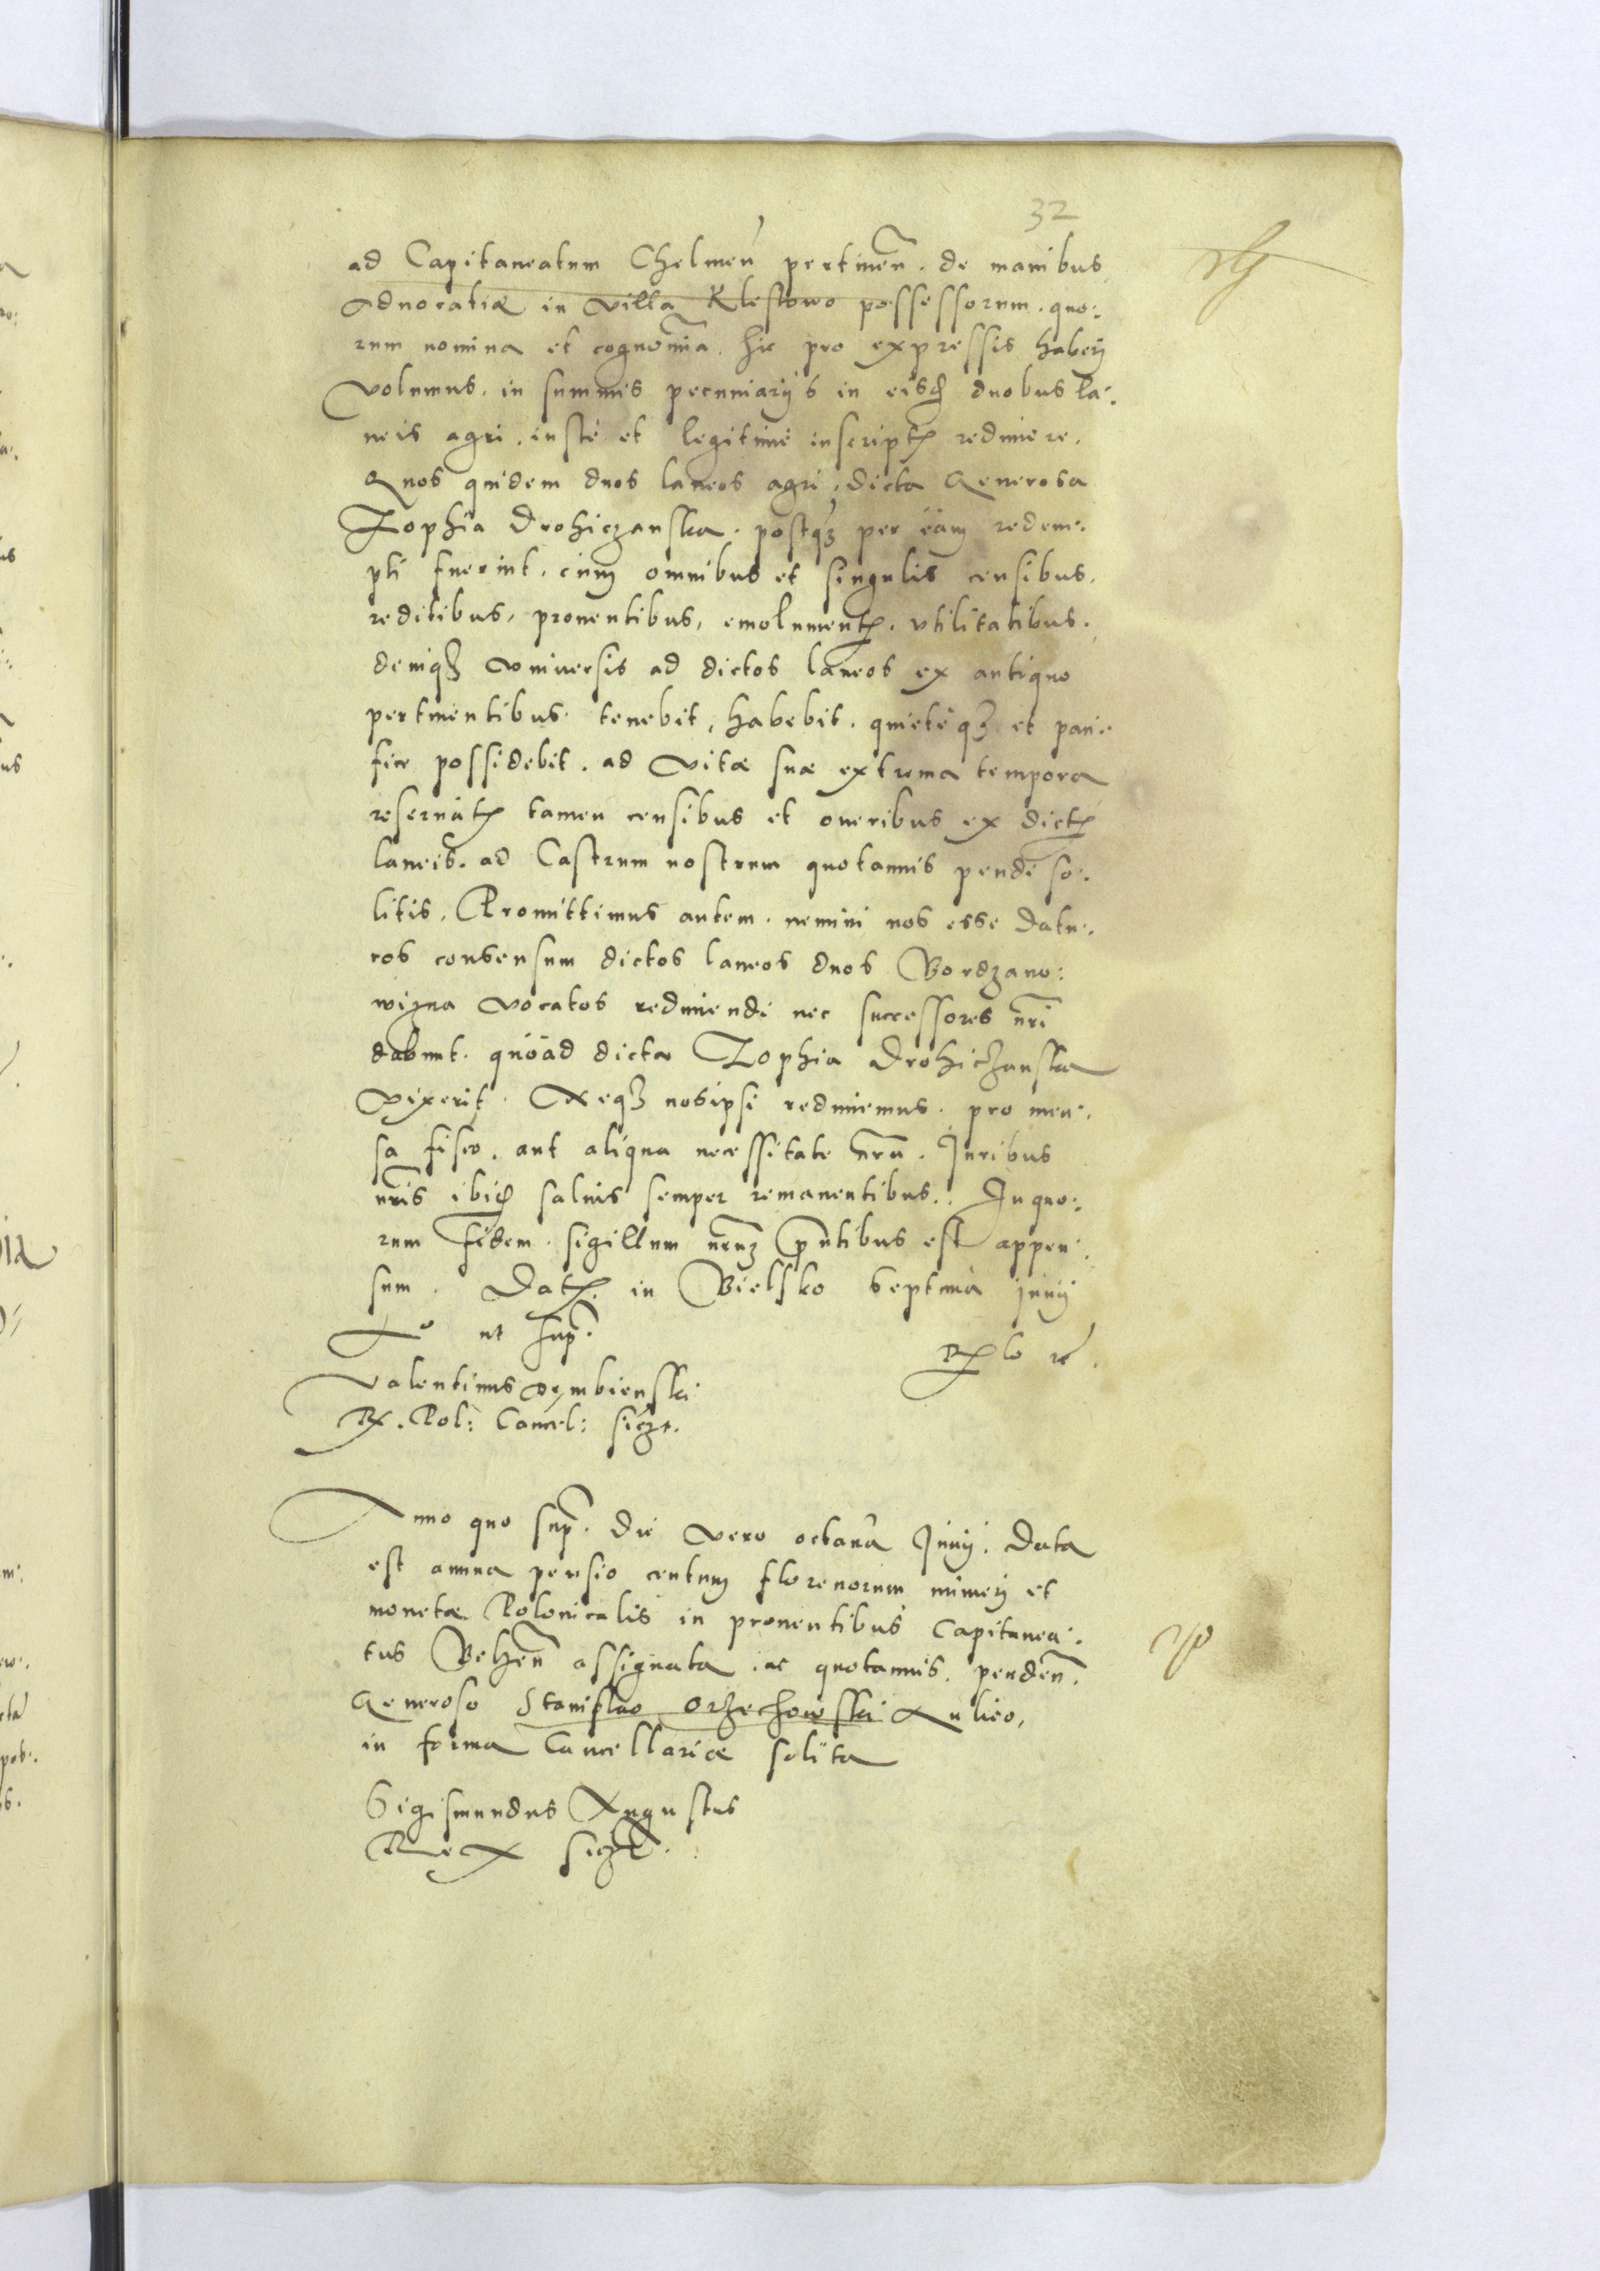 32
ad Capitaneatum Chelmen̄ pertinen̄. de manibus
Aduocatiæ in villa Klestowo possessorum. quo:
rum nomina et cognom̄ia. hic pro expressis haberj
volumus. in summis pecuniarijs in eisd duobus la:
neis agri. iustè et legitimè inscript redimere.
Quos quidem duos laneos agri, dicta Generosa
Zophia Drohiczanska. postq₃ per eam redem:
pti fuerint. cum omnibus et singulis censibus.
reditibus, prouentibus, emolument. vtilitatibus.
deniq₃ vniuersis ad dictos laneos ex antiquo
pertinentibus tenebit, habebit. quietèq₃ et paci:
fice possidebit. ad vitæ suæ extrema tempora
reseruat tamen censibus et oneribus ex dict
laneis. ad Castrum nostrum quotannis pendi so:
litis. Promittimus autem. nemini nos esse datu:
ros consensum dictos laneos duos Bordzano:
wizna vocatos redimendi nec successores nr̄i
dabunt. quoad dicta Zophia Drohiczanska
vixerit. Neq₃ nosipsi redimemus. pro men:
sa fisco. aut aliqua necessitate nr̄a. Iuribus
nr̄is ibid saluis semper remanentibus. In quo:
rum fidem. sigillum nr̄um pn̄tibus est appen:
sum. Dat in Bielsko Septima Junij
Aº ut sup.
Valentinus Dembienski
R. Pol: Cancel: sszt.
Anno quo sup. die vero octaua Junij. Data
est annua pensio centum florenorum numeri et
monetæ Polonicalis in prouentibus Capitanea:
tus Belzen̄ assignata ac quotannis. penden̄.
Generoso Stanislao Orzechowski Aulico,
in forma Cancellariæ solita
Sigismundus Augustus
Rex sszt.